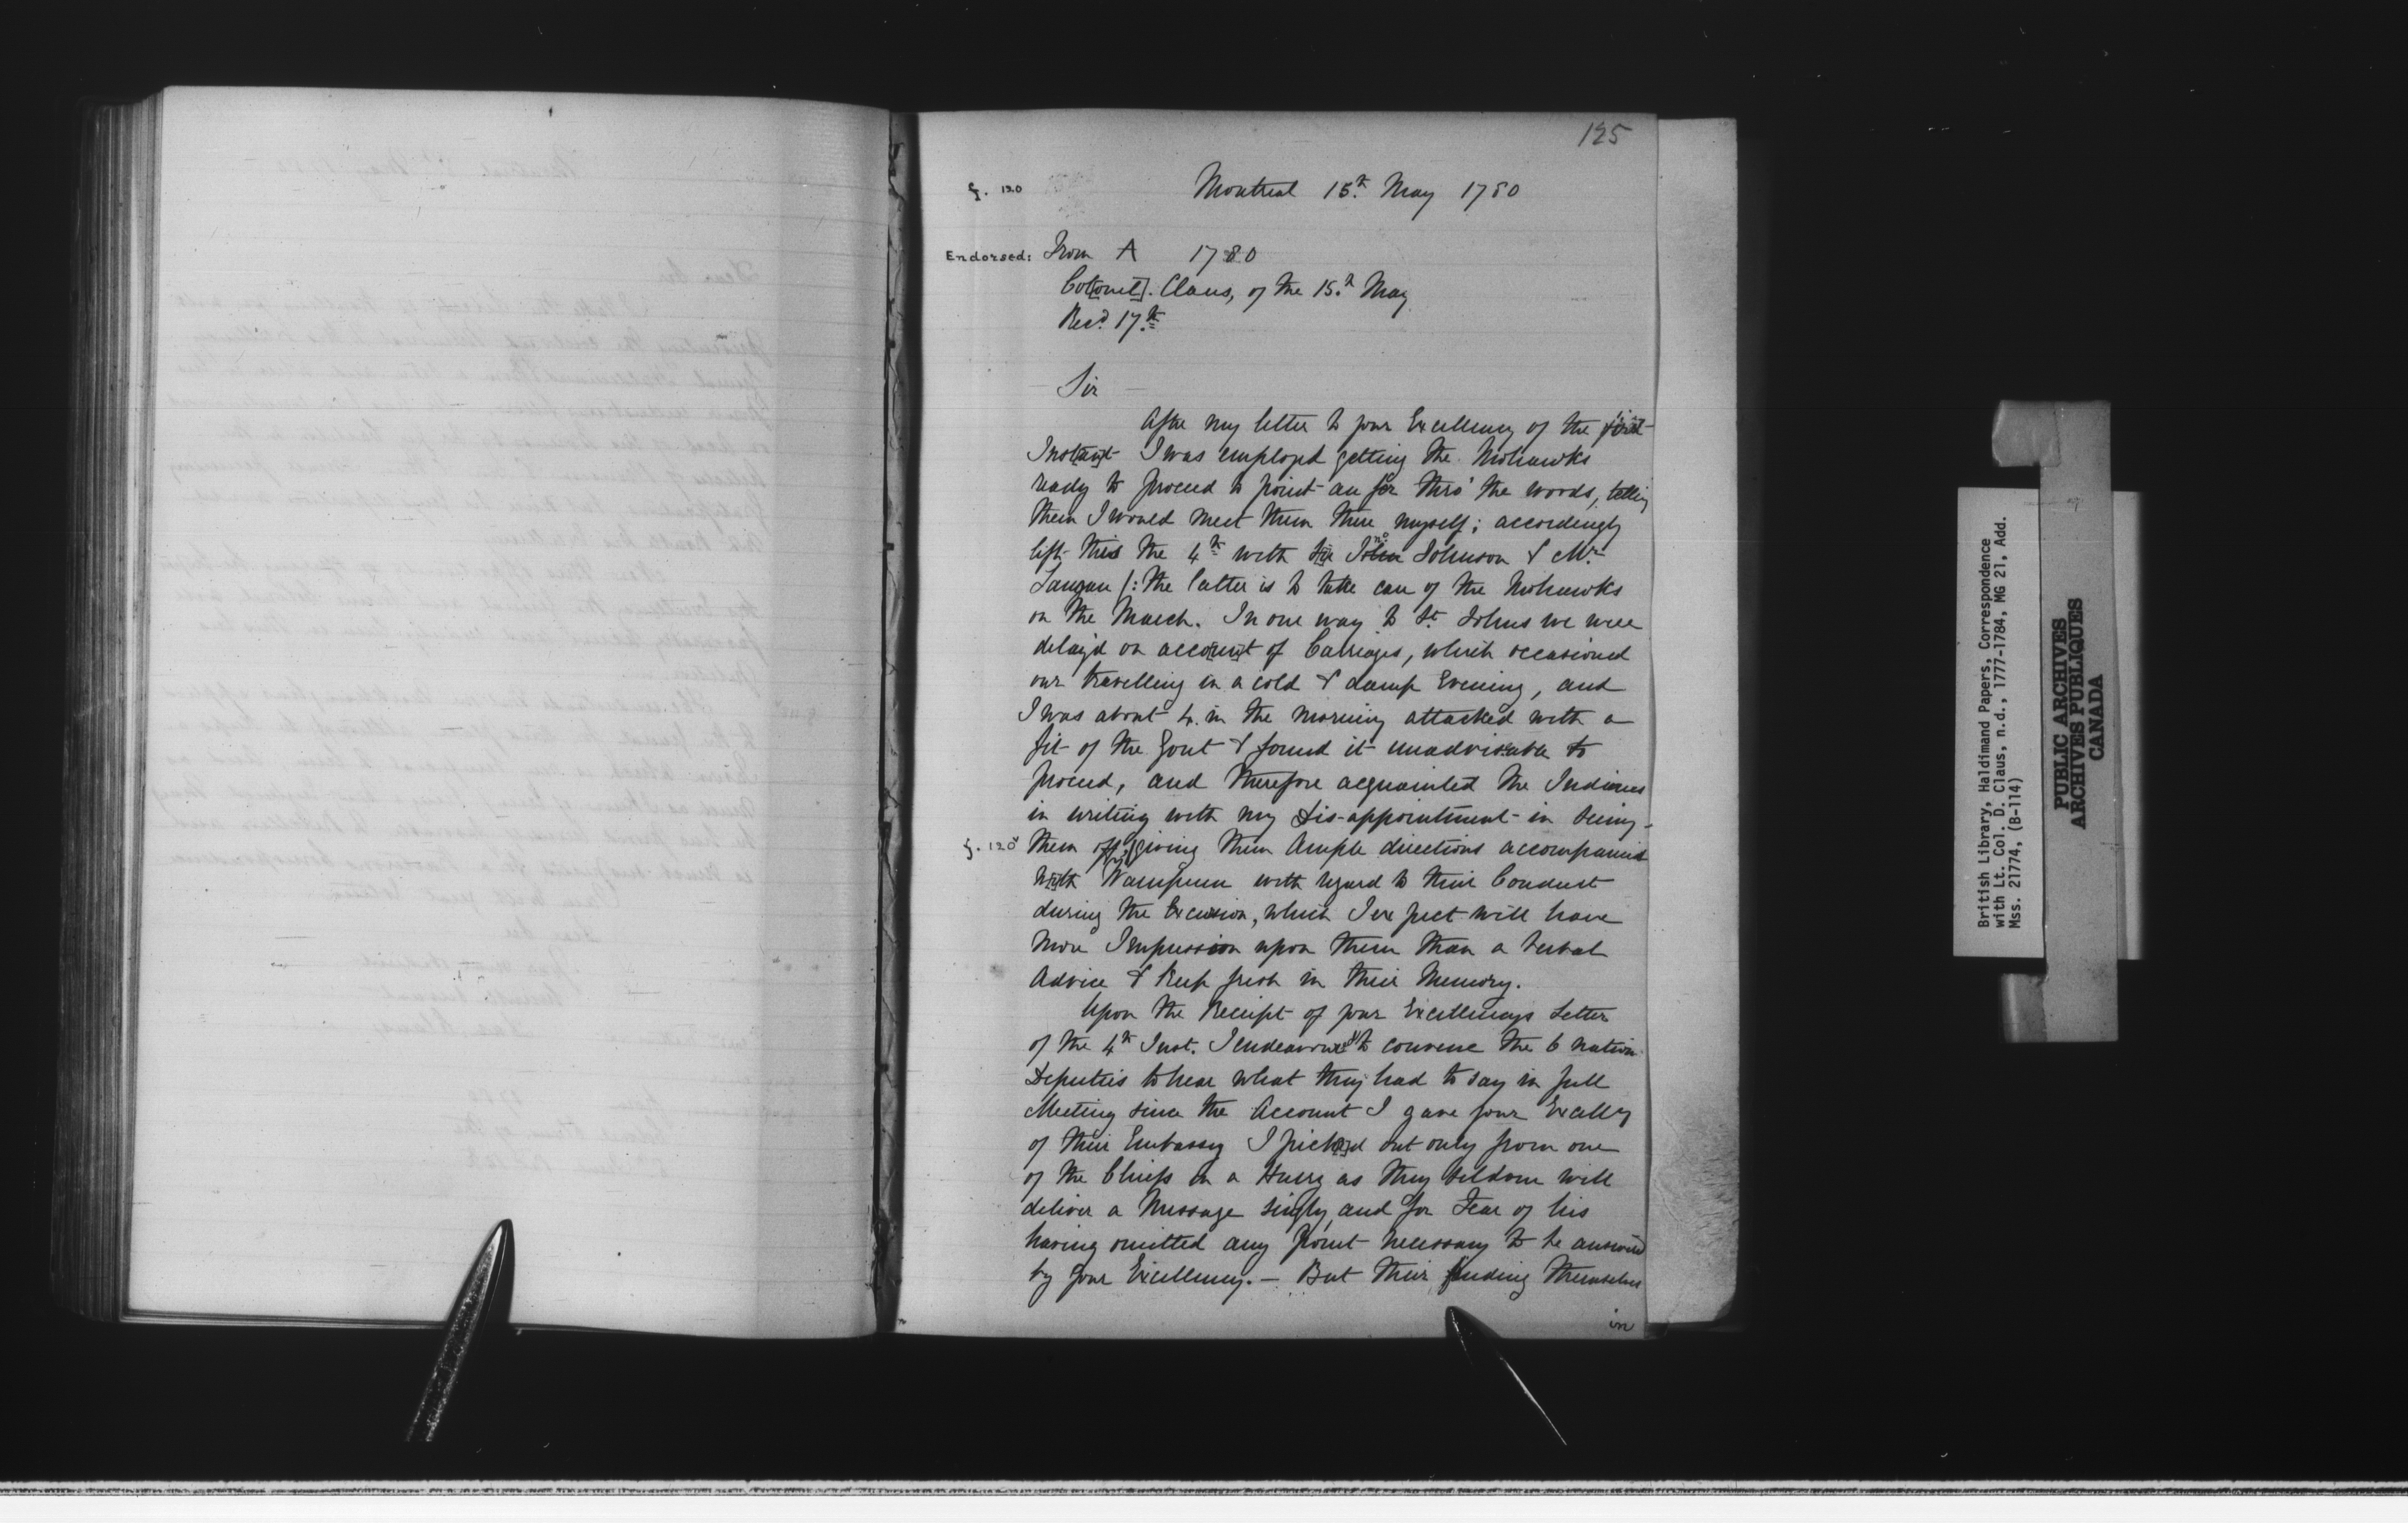 125
f. 120
Montreal 15.th May 1780
Endorsed: From A 1780
Col[onel]. Claus, of the 15.th May
Rec.d 17.th
Sir
After my letter to your Excellency of the first
Inst[an]t I was employed getting the Mohawks
ready to proceed to point au fer thro' the woods, telling
them I would meet them there myself; accordingly
left this the 4th with Sir Jno Johnson & Mr
Langan /: the latter is to take care of the Mohawks
on the March. In our way to St Johns we were
delay'd on acco[un]t of Carriages, which occasioned
our travelling in a cold & damp Evening, and
I was about 4. in the morning attacked with a
fit of the Gout & found it unadvisable to
proceed, and therefore acquainted the Indians
in writing with my Dis-appointment in seeing
f. 120v
them off, giving them Ample directions accompanied
W[i]th Wampum with regard to their Conduct
during the Excursion, which I expect will have
more Impression upon them than a verbal
Advice & keep fresh in their Memory.
Upon the Receipt of your Excellencys Letter
of the 4th Inst. I endeavour'd to convene the 6 nation
Deputies to hear what they had to say in full
Meeting since the Account I gave your Excelly
of their Embassy I pick[e]d out only from one
of the Chiefs in a Hurry as they seldom will
deliver a Message singly, and for Fear of his
having omitted any Point necessary to be answered
by your Excellency. — But their finding themselves
in
British Library, Haldimand Papers, Correspondence
with Lt. Col. D. Claus, n.d., 1777-1784, MG 21, Add.
Mss. 21774, (B-114)
PUBLIC ARCHIVES
ARCHIVES PUBLIQUES
CANADA